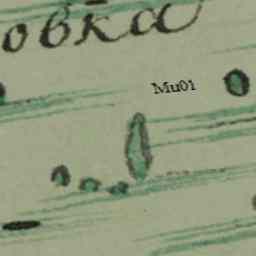 овка
Mu01